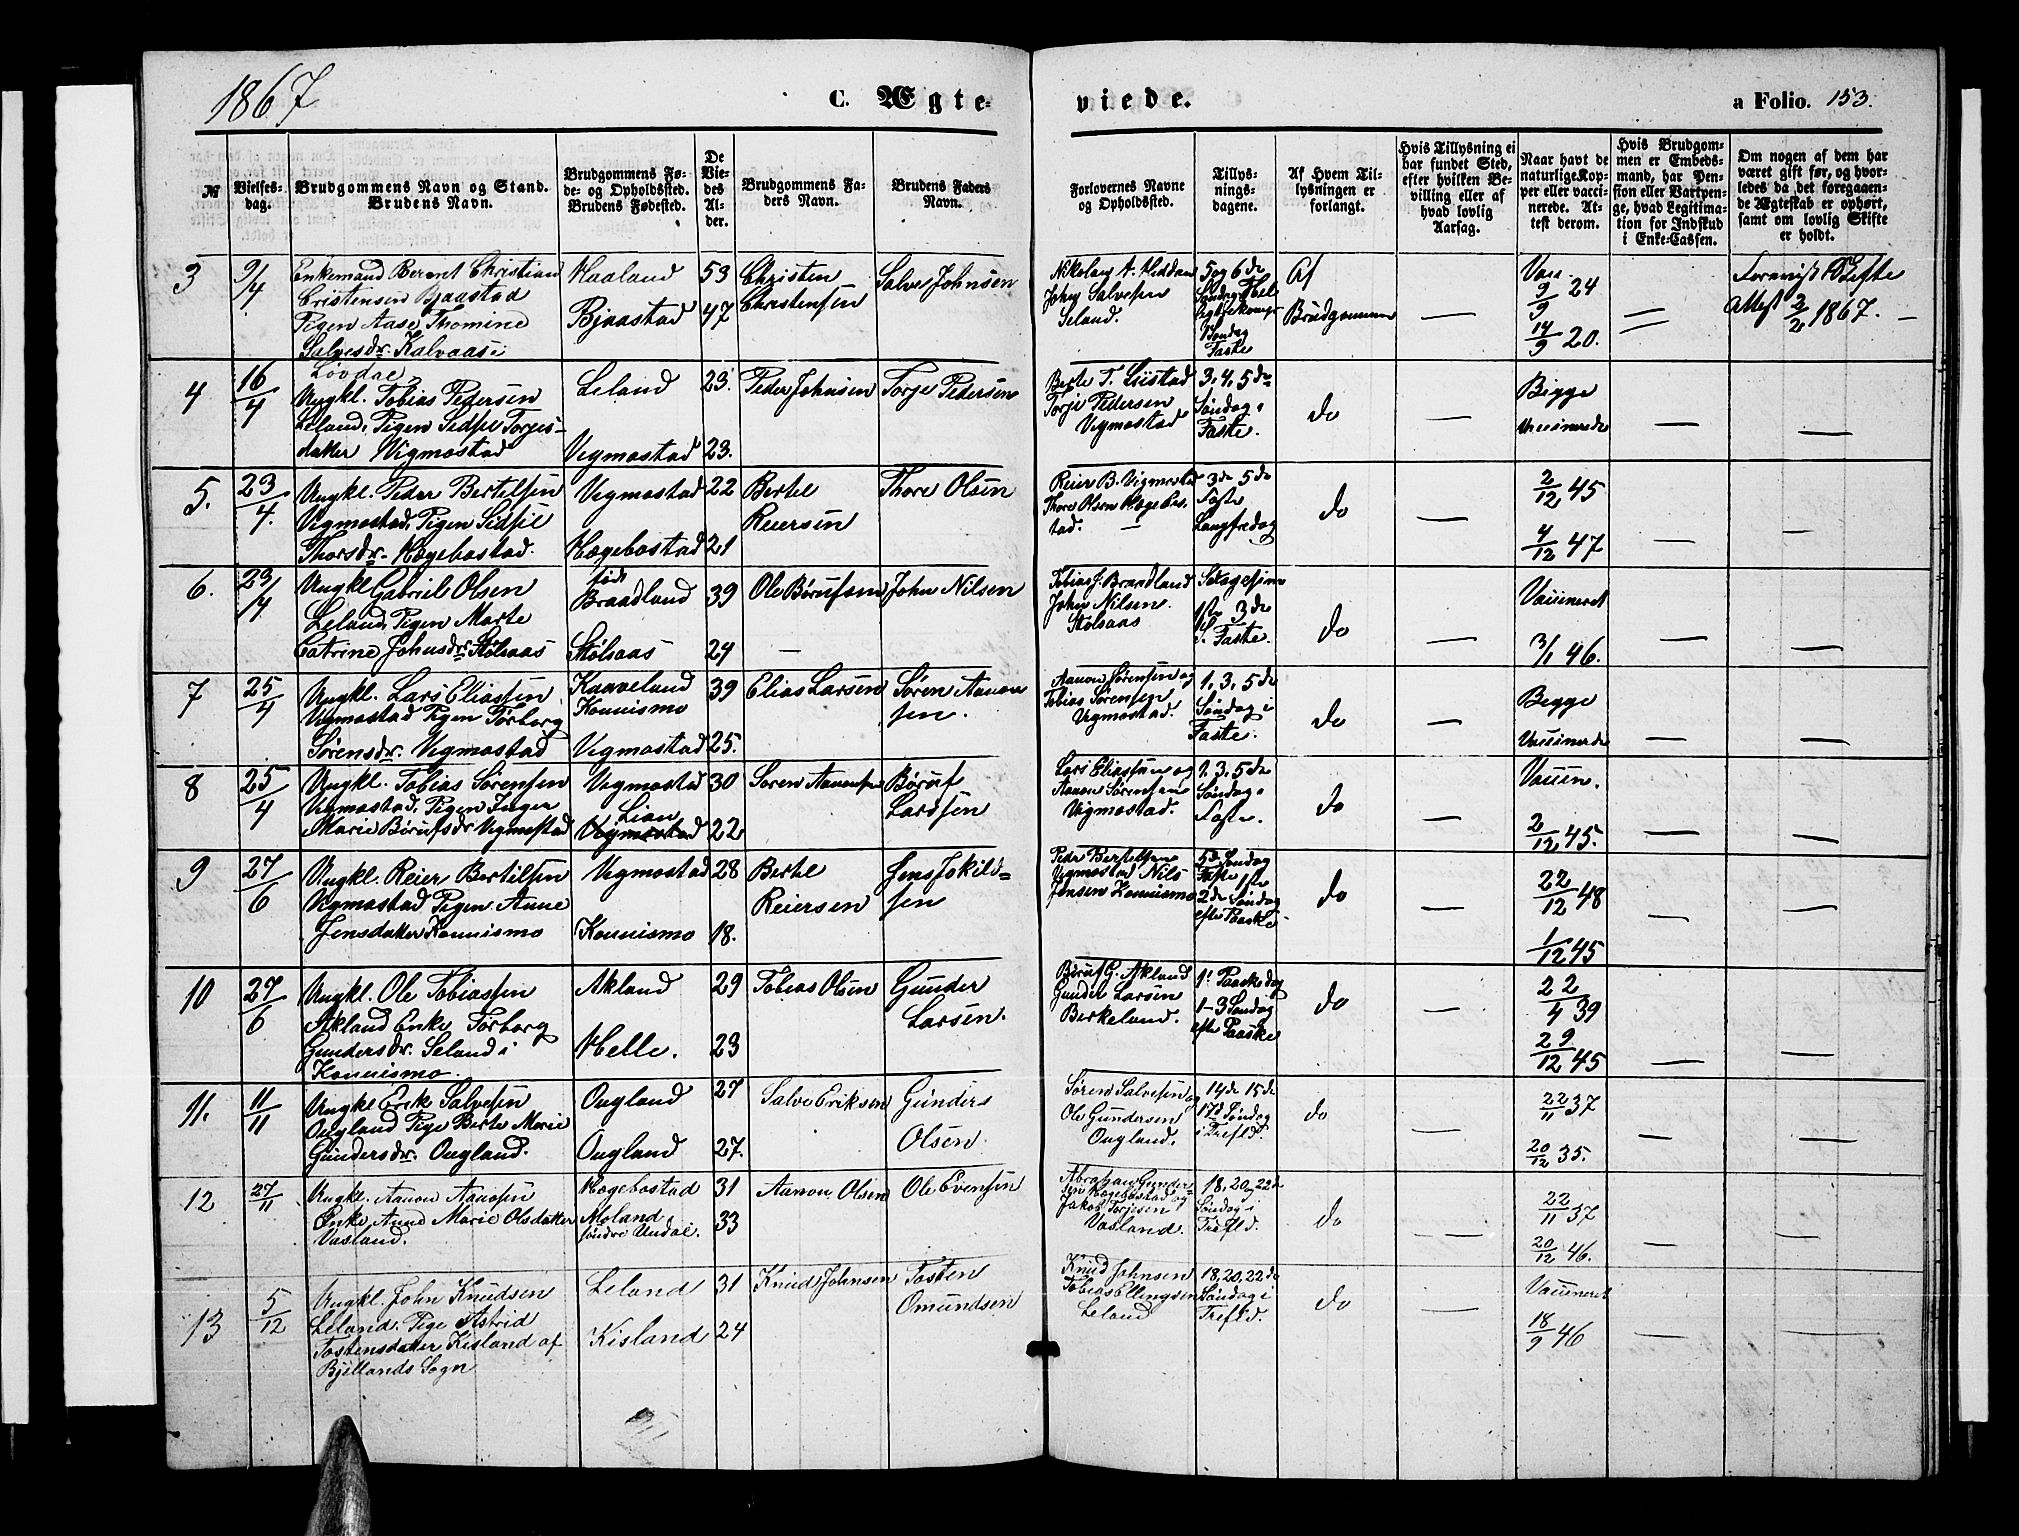 1867
C. Ægte-
viede.
a Folio. 153.
№
Vielses-
dag.
Brudgommens Navn og Stand.
Brudens Navn.
Brudgommens Fø-
de- og Opholdssted.
Brudens Fødested.
De
Vie-
des
Al-
der.
Brudgommens Fa-
ders Navn.
Brudens Faders
Navn.
Forlovernes Navne
og Opholdssted.
Tillys-
nings-
dagene.
Af Hvem Til-
lysningen er
forlangt.
Hvis Tillysning ei
har fundet Sted,
efter hvilken Be-
villing eller af
hvad lovlig
Aarsag.
Naar havt de
naturlige Kop-
per eller vacci-
nerede. At-
test derom.
Hvis Brudgom-
men er Embeds-
mand, har Pen-
sion eller Vartpen-
ge, hvad Legitima-
tion for Indskud
i Enke-Cassen.
Om nogen af dem har
været gift før, og hvor-
ledes da det foregaaen-
de Ægteskab er ophørt,
samt om lovlig Skifte
er holdt.
3
9/4
Enkemand Berent Christian
Cristensen Bjaastad
Pigen Aase Thomine
Salvesdr. Kalvaase i
Løvdal
Haaland
Bjaastad
53
47
Christen
Christensen
Salve Johnsen
John Salvesen
Seland.
5 og 6 de
Søndag
Faste
Af
Brudgommen
—
Vacc.
9/9 24
14/9 20.
=
Attest 2/2 1867. —
4
16/4
Ungkl. Tobias Pedersen
Leland, Pigen Sidsel Torjes-
datter Vigmostad
Leland
Vegmostad
23.
23.
Peder Johnsen
Torje Pedersen
Torje Pedersen
Vegmostad
3, 4, 5 de
Søndag i
Faste.
do
—
Begge
Vaccinerede
—
—
5.
23/4.
Ungkl. Peder Bertelsen
Vegmostad, Pigen Sidsel
Thorsdr. Hægebostad.
Vegmostad
Hægebostad
22
21
Bertel
Reiersen
Thore Olsen
Reier B. Vigmostad
Thore Olsen Hægebos-
tad. —
3 de 5 de
Faste
Langfredag
do
—
2/12 45
4/12 47
—
—
6.
23/4
Ungkl Gabriel Olsen
Leland, Pigen Marte
Catrine Johnsdr. Stølsaas
født
Braadland
Stølsaas
39
24
Ole Børufsen
—
John Nilsen
Tobias J. Braadland
John Nilsen
Stølsaas
1ste 3 de
S. Faste.
do
—
Vaccineret
3/1 46.
—
—
7
25/4
Ungkl. Lars Eliassen
Vigmostad Pigen Torborg
Sørensdr. Vegmostad
Kaaveland
Konnismo
Vegmostad
39
25.
Elias Larsen
Søren Aanon
sen.
Aanon Sørensen og
Tobias Sørensen
Vegmostad.
1, 3, 5 de
Søndag i
Faste.
do
—
Begge
Vaccinerede
—
—
8
25/4
Ungkl. Tobias Sørensen
Vegmostad, Pigen Inger
Marie Børufsdr. Vegmostad
Vegmostad
Lian
Vegmostad
30
22
Soren Aanonsen
Børuf
Larssen
Lars Eliassen og
Aanon Sørensen
Vigmostad.
1, 3, 5 de
Søndag i
Faste.
do
—
Vaccin.
2/12 45.
—
—
9
27/6
Ungkl. Reier Bertelsen
Vegmostad Pigen Anne
Jensdatter Konnismo
Vegmostad
Konnismo
28
18.
Bertel
Reiersen
Jens Jokild=
sen
Peder Bertelsen
Vegmostad Nils
Jensen Konnismo
5 de Søndag
Faste 1ste
2 de Søndag
efter Paaske
do
—
22/12 48
1/12 45
—
—
10
27/6
Ungkl. Ole Tobiassen
Akland Enke Torborg
Gundersdr. Seland i
Konnismo.
Akland
Helle.
29
23
Tobias Olsen
Gunder
Larsen.
Børuf G. Akland
Gunder Larsen
Birkeland.
1. Paaskedag
1-3 Søndag
efter Paaske
do
—
22/4 39
29/12 45
—
—
11.
11/11
Ungkl Erik Salvesen
Ougland Pige Berte Marie
Gundersdr. Ougland.
Ougland
Ougland
27
27.
Salve Eriksen
Gunders
Olsen.
Søren Salvesen og
Ole Gundersen
Ougland.
14 de 15 de
17 d Søndag
i Trefld.
do
—
22/11 37
20/12 35.
—
—
12
27/11
Ungkl. Aanon Aanonsen
Enke Anne Marie Olsdatter
Vasland.
Hægebostad
Moland
søndre Undal.
31
33
Aanon Olsen
Ole Evensen
Abraham Gunder-
sen Hægebostad og
Jakob Torjesen
Vasland.
18, 20, 22 de
Søndag i
Trefld.
do
— —
22/11 37
20/12 46.
—
—
13
5/12
Ungkl. John Knudsen
Leland, Pige Astrid
Tostensdatter Kisland af
Bjellands Sogn
Leland
Kisland
31
24
Knud Johnsen
Tosten
Omundsen
Knud Johnsen
Tobias Ellingsen
Leland
18, 20, 22 de
Søndag i
Trefld.
do
—
Vaccineret
18/9 46
—
—